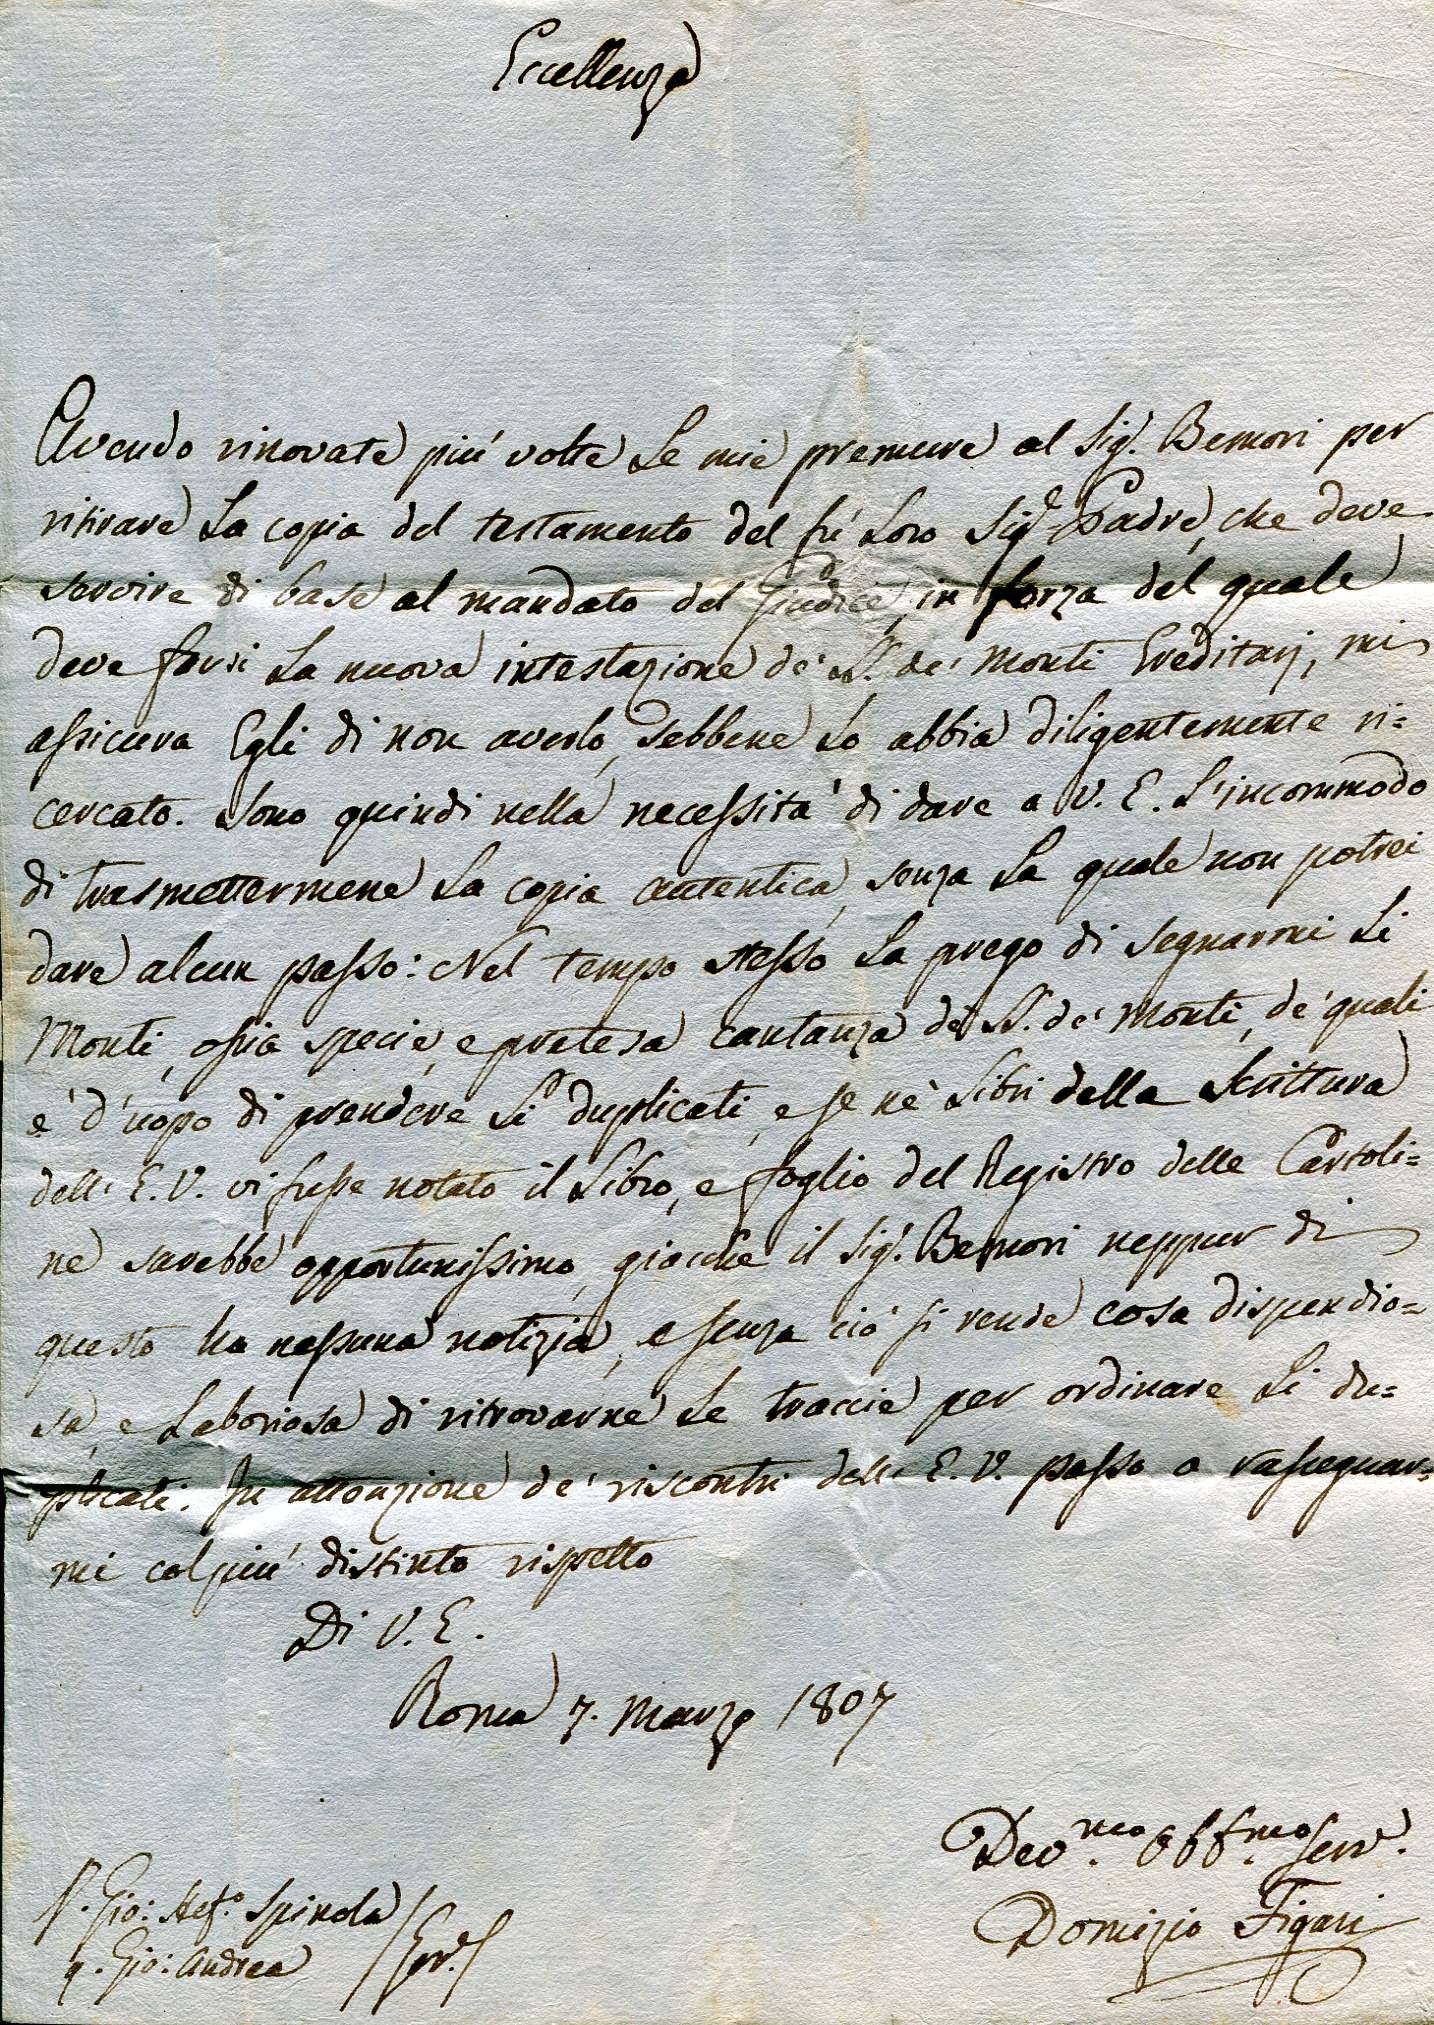 Eccellenza
Avendo rinovate più volte le mie premure al Sig.r Bemori per
ritirare la copia del testamento del fù loro Sig.e Padre, che deve
servire di base al mandato del Giudice, in forza del quale
deve farsi la nuova intestazione de' LL. de' Monti Ereditarj, mi
assicura Egli di non averlo, sebbene lo abbia diligentemente ri=
cercato. Sono quindi nella necessità di dare a V. E. l'incommodo
di trasmettermene la copia autentica, senza la quale non potrei
dare alcun passo: Nel tempo stesso la prego di segnarmi li
Monti, ossia specie, e pretesa cantanza de' LL. de' Monti, de' quali
è d'uopo di prendere li duplicati, e se nè libri della Scrittura
dell' E. V. vi fusse notato il Libro, e foglio del Registro delle Cartoli=
ne sarebbe opportunissimo, giacche il Sig.r Bemori neppur di
questo ha nessuna notizia, e senza ciò si rende cosa dispendio=
sa, e laboriosa di ritrovarne le traccie per ordinare li du=
plicati. In attenzione de' riscontri dell' E. V. passo a rassegnar=
mi col più distinto rispetto
Di V. E.
Roma 7. Marzo 1807
Dev.mo Obb.mo Serv.
Domizio Figari
Gio: Stef.o Spinola
q. Gio: Andrea